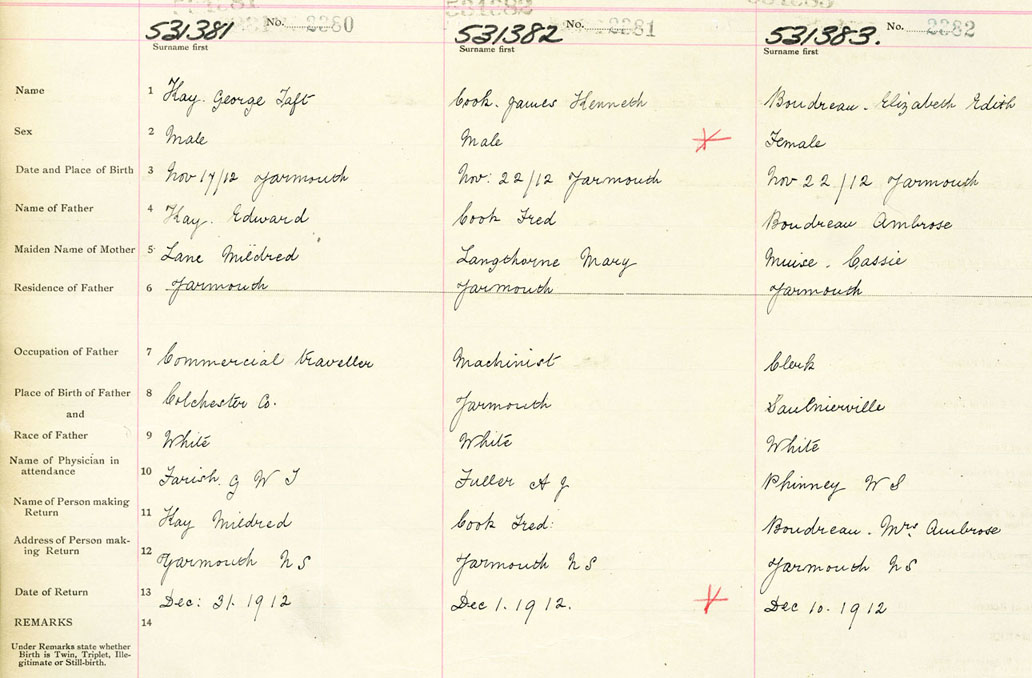 531381 No. 2280 531382 No. 2281 531383. No. 2282
Surname first Surname first Surname first
Name 1 Kay. George Taft Cook. James Kenneth Boudreau. Elizabeth Edith
Sex 2 Male Male Female
Date and Place of Birth 3 Nov 17/12 Yarmouth Nov: 22/12 Yarmouth Nov 22/12 Yarmouth
Name of Father 4 Kay. Edward Cook Fred Boudreau Ambrose
Maiden Name of Mother 5 Lane Mildred Langthorne Mary Muise. Cassie
Residence of Father 6 Yarmouth Yarmouth Yarmouth
Occupation of Father 7 Commercial traveller Machinist Clerk
Place of Birth of Father 8 Colchester Co. Yarmouth Saulnierville
and
Race of Father 9 White White White
Name of Physician in
attendance 10 Farish. G W T Fuller A J Phinney W S
Name of Person making
Return 11 Kay Mildred Cook Fred: Boudreau. Mrs Ambrose
Address of Person mak-
ing Return 12 Yarmouth N S Yarmouth N S Yarmouth N S
Date of Return 13 Dec: 31. 1912 Dec 1. 1912. Dec 10. 1912
REMARKS 14
Under Remarks state whether
Birth is Twin, Triplet, Ille-
gitimate or Still-birth.